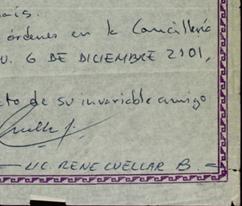 país.
órdenes en la Cancillería
U. 6 DE DICIEMBRE 2001,
cto de su invariable amigo
LIC. RENE CUELLAR B